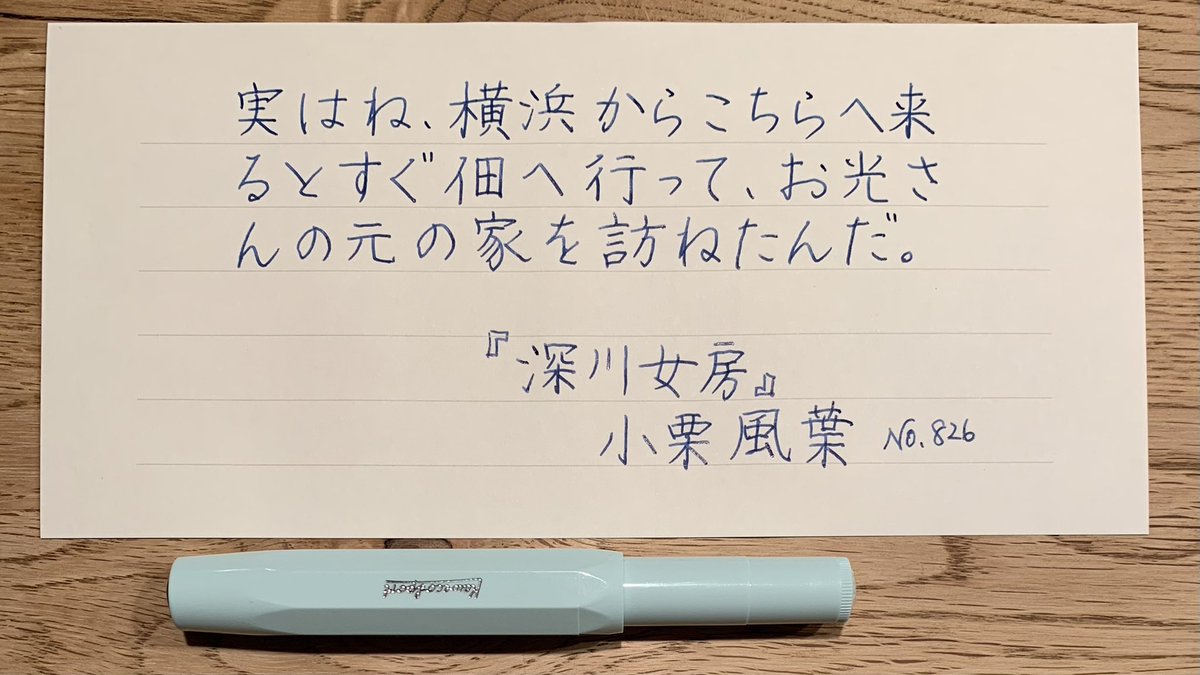 実はね、横浜からこちらへ来
るとすぐ佃へ行って、お光さ
んの元の家を訪ねたんだ。
『深川女房』
小栗風葉 No.826
Kaweco Sport